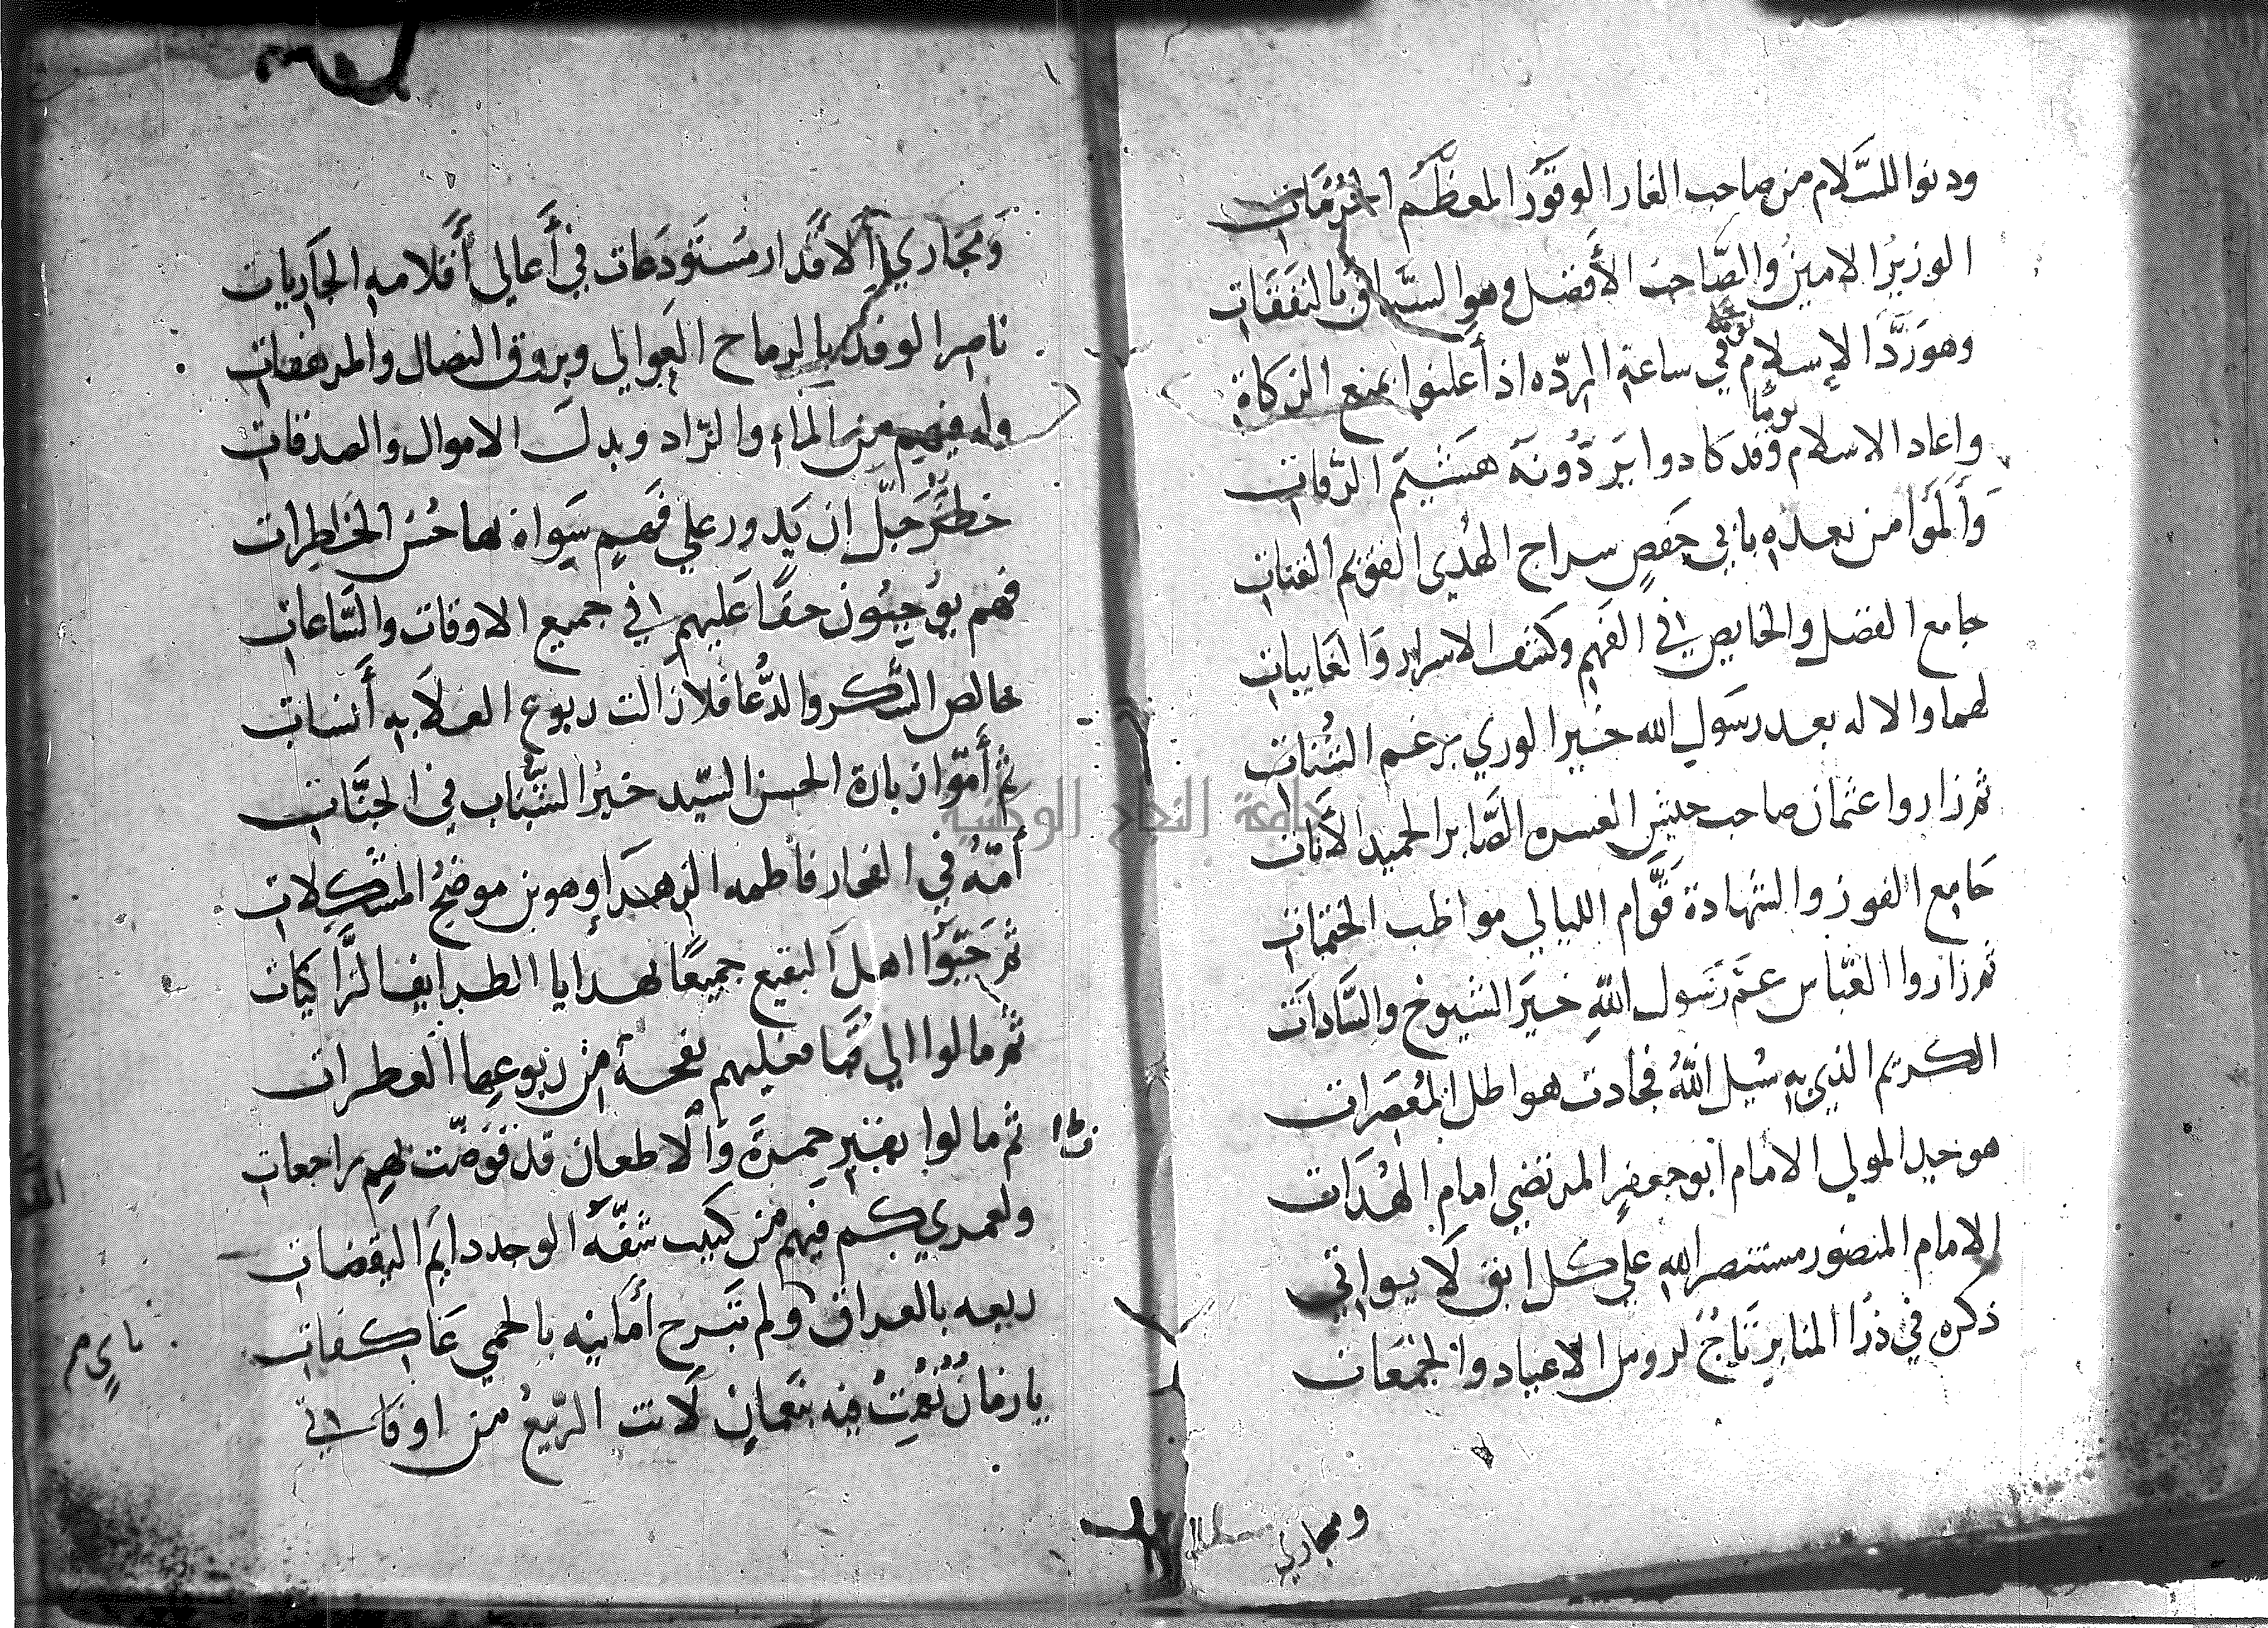 ودنوا للسَّلام من صاحب الغار الوقوَر المعظَّم الحُرُمَات
الوزيرُ الامينُ والصَّاحبَ الأفضل وهو السَّباق بالنفقَات
وهو رَدَّ الإسلام في ساعة الردّه اذ أعلنوا بمنع الزكاة
يومًا
واعاد الاسلام وقد كادوا يَردّونهُ هشيمَ الرّفات
وَأَلَمُّوا من بعده بابي حَفصٍ سراج الهُدى القويم القناتِ
جامع الفضل والخايض في الفَهم وكشف الاسرار وَالغايبات
لهما والاله بعد رسَول الله خير الوري برغم الشُنات
ثم زاروا عثمان صاحب جيش العسره الصَّابر الحميد الأنَات
جَامع الفوز والشهادة قَوَّام الليالي مواظب الختمات
ثم زاروا العَبَّاس عَمّ رَسَول اللهِ خيرَ الشيوخ والسَّادات
الكريم الذي به سُيل اللهُ فجادت هواطل المُعصَرات
هو جد المولي الامام ابو جعفرٍ المرتضي امام الهُدَات
الامام المنصور مستنصر الله علي كل ابق لَا يواتي
ذكره في ذرَا المنابر تَاجُ لروس الاعياد والجُمعَات
ومجاري
وَمَجَاري الأقْدار مسْتَودَعات في أَعالي أقلامه الجَاريات
ناصر الوفد بالرماح العوالي وبروق النصال والمرهفات
وله فيهم من الماء والزّاد وبدل الاموال والصدقات
خطَرٌ جَلّ ان يَدور علي فَهمٍ سَواهُ لها حُسْن الخَاطِرات
فهم يوُجبُون حقًا عَليهم في جميع الاوقات والسَّاعات
خالص الشَّكر والدُّعا فلا زالت ربوع العلاَ به أنسات
ثم أَمّوا زيارة الحسن السّيد خيرُ الشَّبَاب في الجنَّات
أمّهُ في الفخار فاطمه الزهرَاء وهو بن موضحُ المشكلات
ثم حَيّوُا اهلَ البقيع جميعًا لهدايا الطرايف الزَّاكيات
ثم مالوا الي قُبَا فعليهم نفحة من ربوعها العطرات
ثم مالوا بقبر حمزةَ والاظعان قد قوّضت لهم راجعات
ولعمري كم فيهم من كييب شفّهُ الوجد دايم اليقضات
ربعه بالعراق ولم تبَرح أمانيه بالحمي عَاكفات
يا زمانٌ نُعمتُ فيه بنَعمانٍ لَانت الرّبيعُ من اوقاتي
جامعة النجاح الوطنية